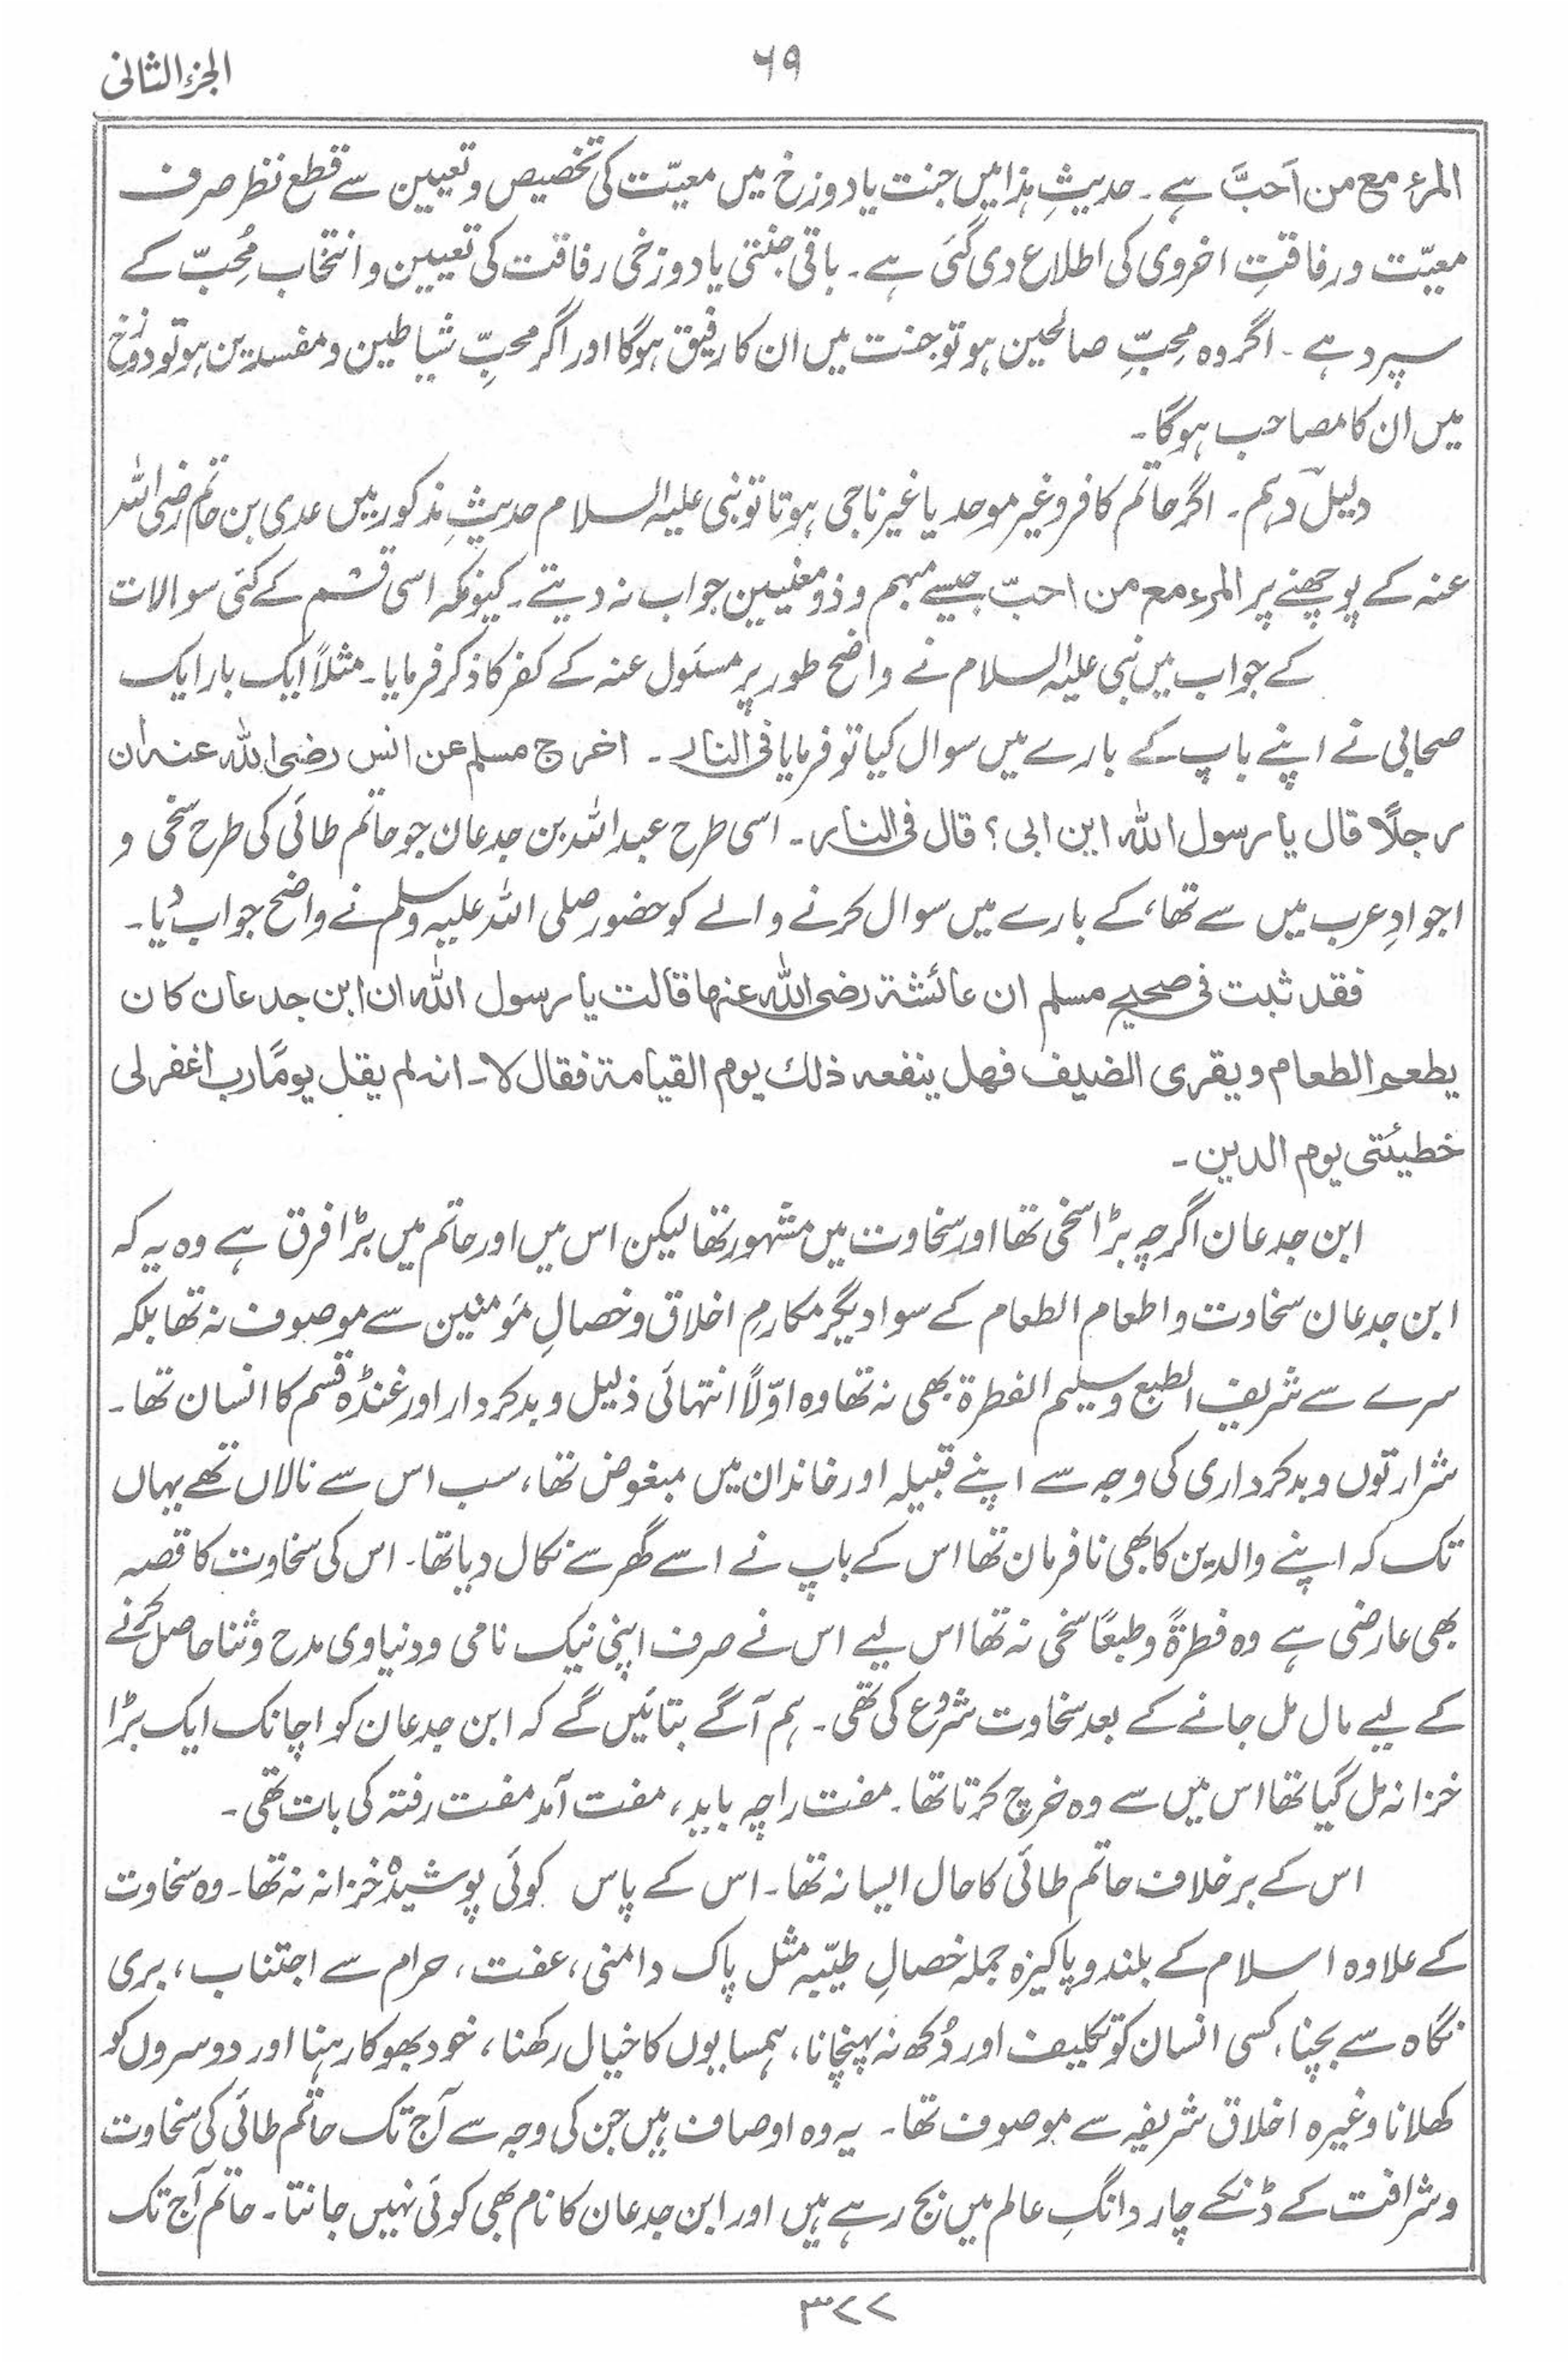 الجزء الثانی
۶۹
المرء مع من اَحبَّ ہے۔ حدیثِ ہذا میں جنت یا دوزخ میں معیّت کی تخصیص و تعیین سے قطع نظر صرف
معیّت و رفاقتِ اخروی کی اطلاع دی گئی ہے۔ باقی جنتی یا دوزخی رفاقت کی تعیین و انتخاب مُحِبّ کے
سپرد ہے۔ اگر وہ مُحِبِّ صالحین ہو تو جنت میں ان کا رفیق ہوگا اور اگر محبِّ شیاطین و مفسدین ہو تو دوزخ
میں ان کا مصاحب ہوگا۔
دلیل دہم۔ اگر حاتم کافر و غیر موحد یا غیر ناجی ہوتا تو نبی علیہ السلام حدیثِ مذکور میں عدی بن حاتم رضی اللہ
عنہ کے پوچھنے پر المرء مع من احبّ جیسے مبہم و ذو معنیین جواب نہ دیتے۔ کیونکہ اسی قسم کے کئی سوالات
کے جواب میں نبی علیہ السلام نے واضح طور پر مسئول عنہ کے کفر کا ذکر فرمایا۔ مثلاً ایک بار ایک
صحابی نے اپنے باپ کے بارے میں سوال کیا تو فرمایا فی النار۔ اخرج مسلم عن انس رضی اللہ عنہ ان
رجلاً قال یا رسول اللہ این ابی؟ قال فی النار۔ اسی طرح عبداللہ بن جدعان جو حاتم طائی کی طرح سخی و
اجوادِ عرب میں سے تھا، کے بارے میں سوال کرنے والے کو حضور صلی اللہ علیہ وسلم نے واضح جواب دیا۔
فقد ثبت فی صحیح مسلم ان عائشۃ رضی اللہ عنہا قالت یا رسول اللہ ان ابن جدعان کان
یطعم الطعام ویقری الضیف فھل ینفعہ ذلك یوم القیامۃ فقال لا۔ انہ لم یقل یومًا رب اغفر لی
خطیئتی یوم الدین۔
ابن جدعان اگرچہ بڑا سخی تھا اور سخاوت میں مشہور تھا لیکن اس میں اور حاتم میں بڑا فرق ہے وہ یہ کہ
ابن جدعان سخاوت و اطعام الطعام کے سوا دیگر مکارمِ اخلاق و خصالِ مؤمنین سے موصوف نہ تھا بلکہ
سرے سے شریف الطبع و سلیم الفطرۃ بھی نہ تھا وہ اوّلاً انتہائی ذلیل و بدکردار اور غنڈہ قسم کا انسان تھا۔
شرارتوں و بدکرداری کی وجہ سے اپنے قبیلہ اور خاندان میں مبغوض تھا، سب اس سے نالاں تھے یہاں
تک کہ اپنے والدین کا بھی نافرمان تھا اس کے باپ نے اسے گھر سے نکال دیا تھا۔ اس کی سخاوت کا قصہ
بھی عارضی ہے وہ فطرۃً و طبعًا سخی نہ تھا اس لیے اس نے صرف اپنی نیک نامی و دنیاوی مدح و ثنا حاصل کرنے
کے لیے مال مل جانے کے بعد سخاوت شروع کی تھی۔ ہم آگے بتائیں گے کہ ابن جدعان کو اچانک ایک بڑا
خزانہ مل گیا تھا اس میں سے وہ خرچ کرتا تھا۔ مفت را چہ باید، مفت آمد مفت رفتہ کی بات تھی۔
اس کے برخلاف حاتم طائی کا حال ایسا نہ تھا۔ اس کے پاس کوئی پوشیدہ خزانہ نہ تھا۔ وہ سخاوت
کے علاوہ اسلام کے بلند و پاکیزہ جملہ خصالِ طیّبہ مثل پاک دامنی، عفت، حرام سے اجتناب، بری
نگاہ سے بچنا، کسی انسان کو تکلیف اور دُکھ نہ پہنچانا، ہمسایوں کا خیال رکھنا، خود بھوکا رہنا اور دوسروں کو
کھلانا وغیرہ اخلاق شریفہ سے موصوف تھا۔ یہ وہ اوصاف ہیں جن کی وجہ سے آج تک حاتم طائی کی سخاوت
و شرافت کے ڈنکے چار دانگِ عالم میں بج رہے ہیں اور ابن جدعان کا نام بھی کوئی نہیں جانتا۔ حاتم آج تک
۳۷۷